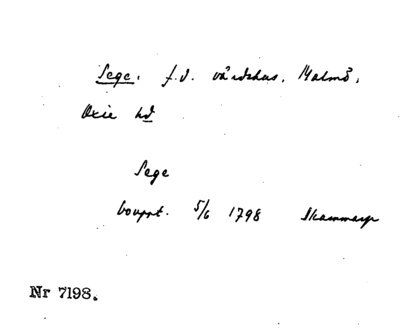 Sege. f.d. värdshus, Malmö,
Oxie hd
Sege
bouppt. 5/6 1798 Skammarp
Nr 7198.